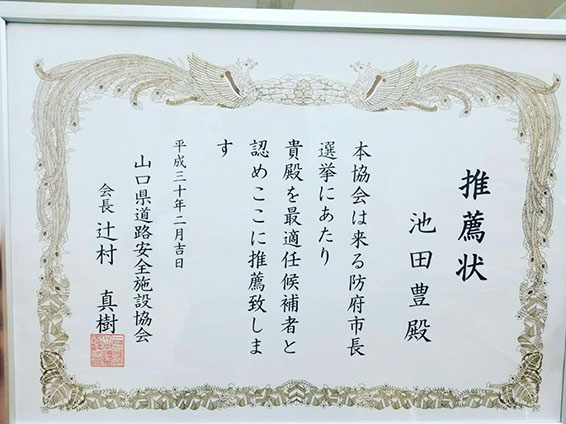 推薦状
池田豊殿
本協会は来る防府市長
選挙にあたり
貴殿を最適任候補者と
認めここに推薦致しま
す
平成三十年二月吉日
山口県道路安全施設協会
会長 辻村 真樹